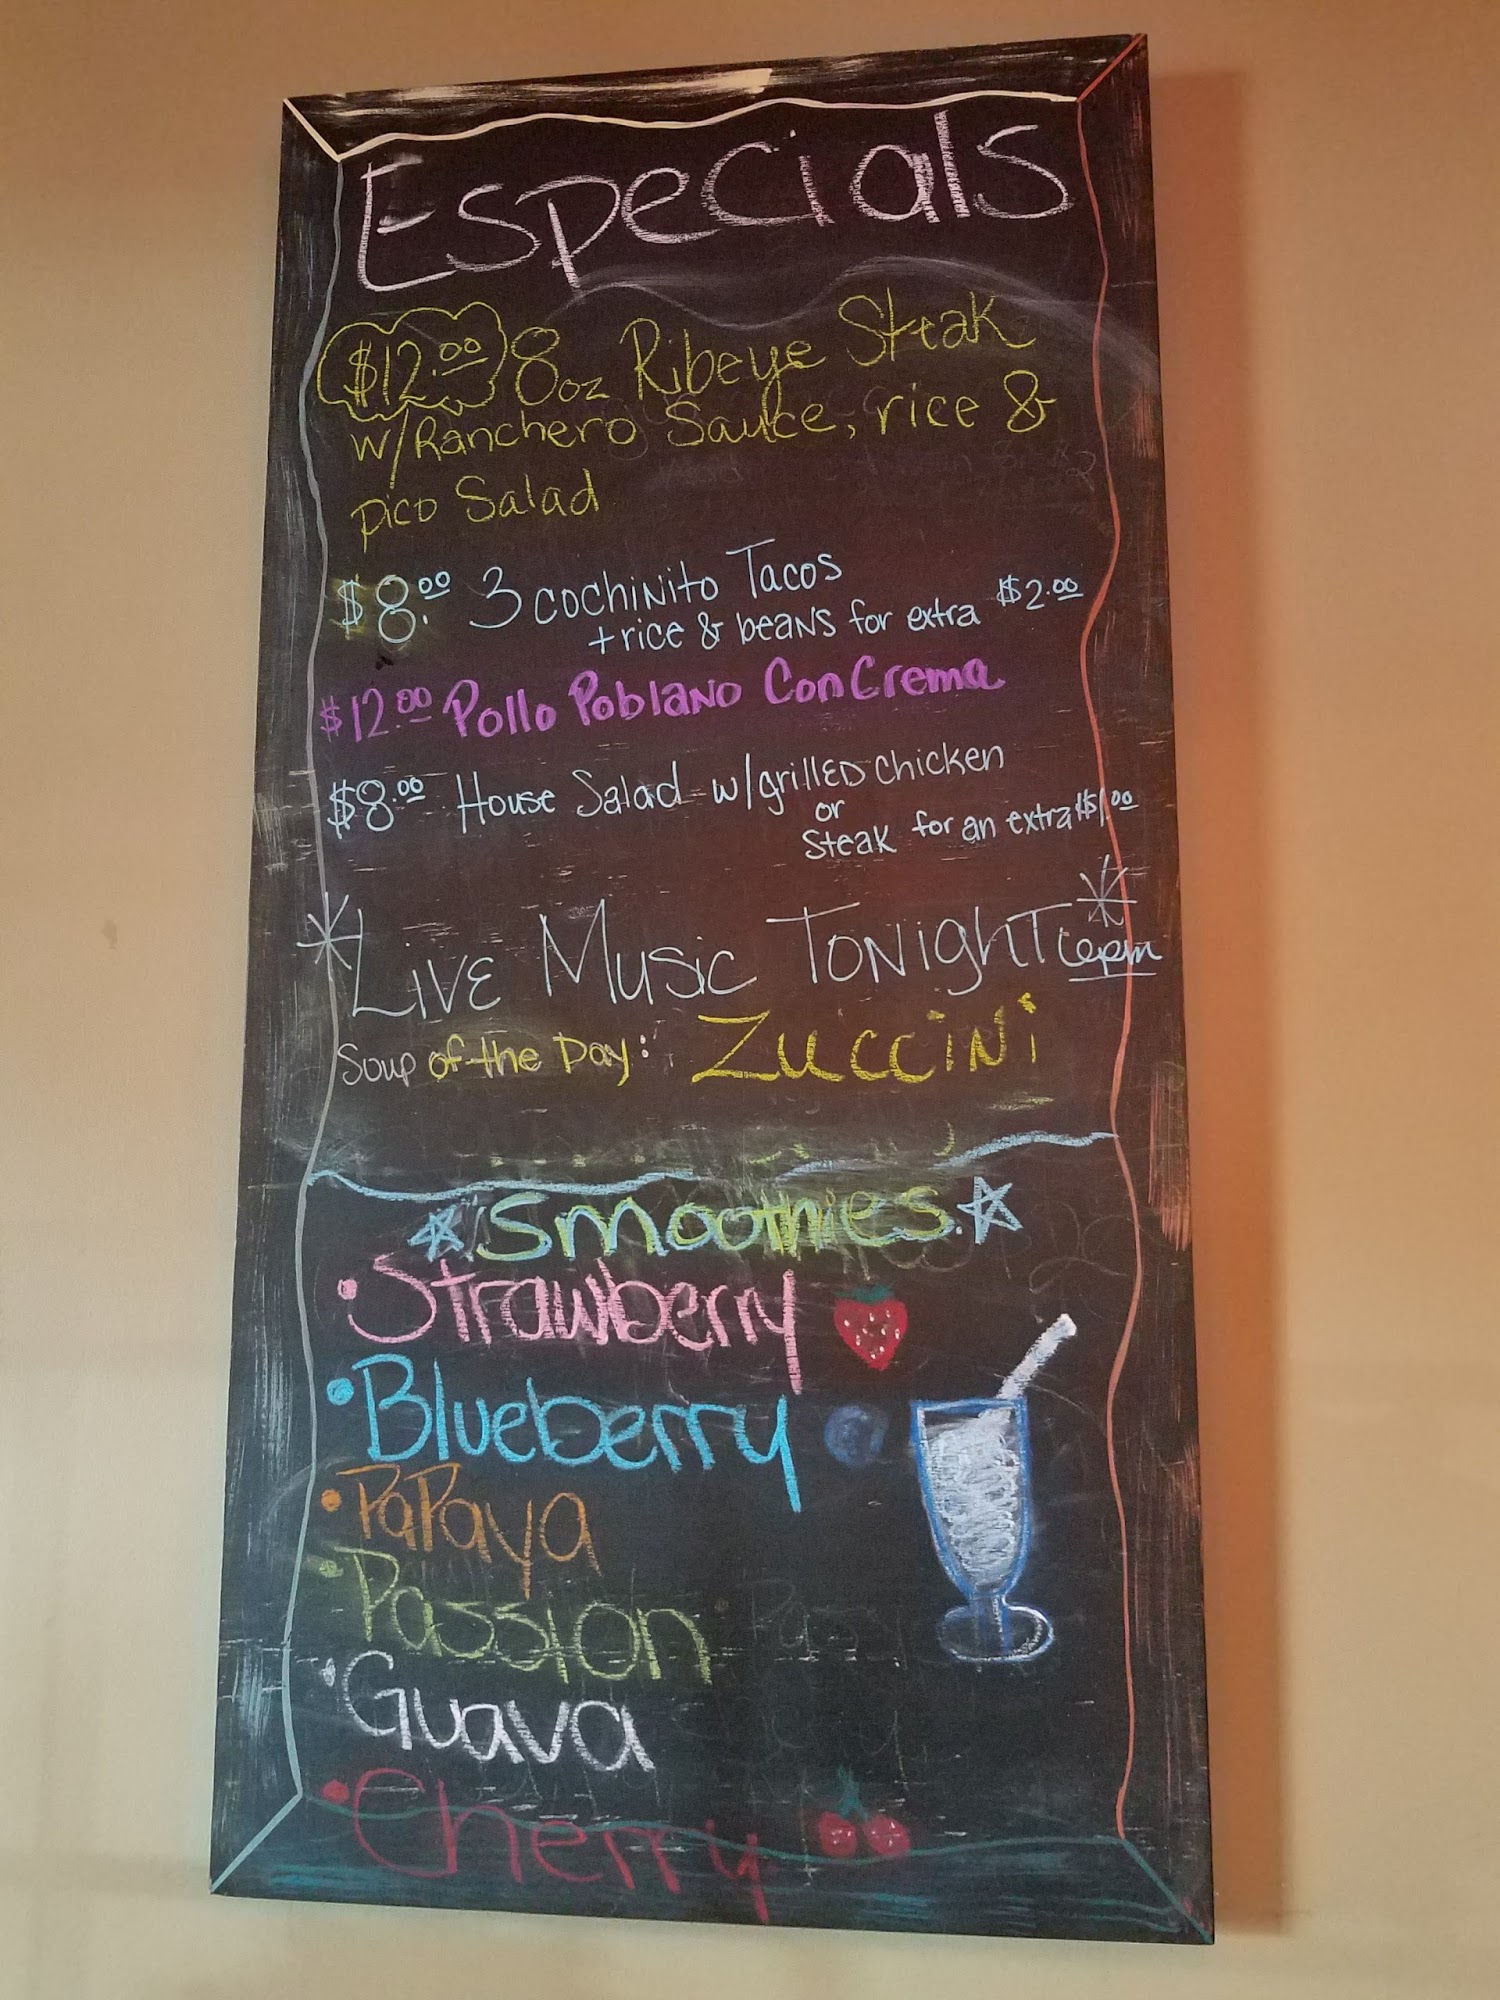 Especials
$12.00 8oz Ribeye Steak
w/Ranchero Sauce, rice &
pico Salad
$8.00 3 cochinito Tacos
+ rice & beans for extra $2.00
$12.00 Pollo Poblano Con Crema
$8.00 House Salad w/grilled chicken
or
steak for an extra $1.00
*Live Music Tonight* 6pm
Soup of the Day: Zuccini
Smoothies
• Strawberry
• Blueberry
• Papaya
• Passion
• Guava
• Cherry